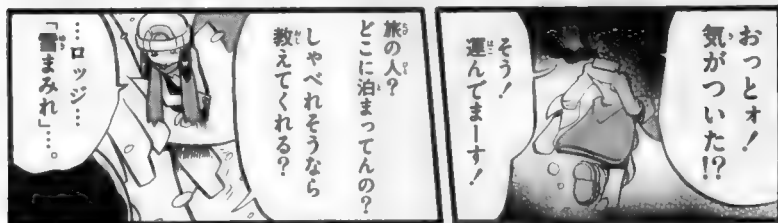 おっとォ！
気がついた!?
そう！
運んでまーす！
旅の人？
どこに泊まってんの？
しゃべれそうなら
教えてくれる？
…ロッジ…
「雪まみれ」…。